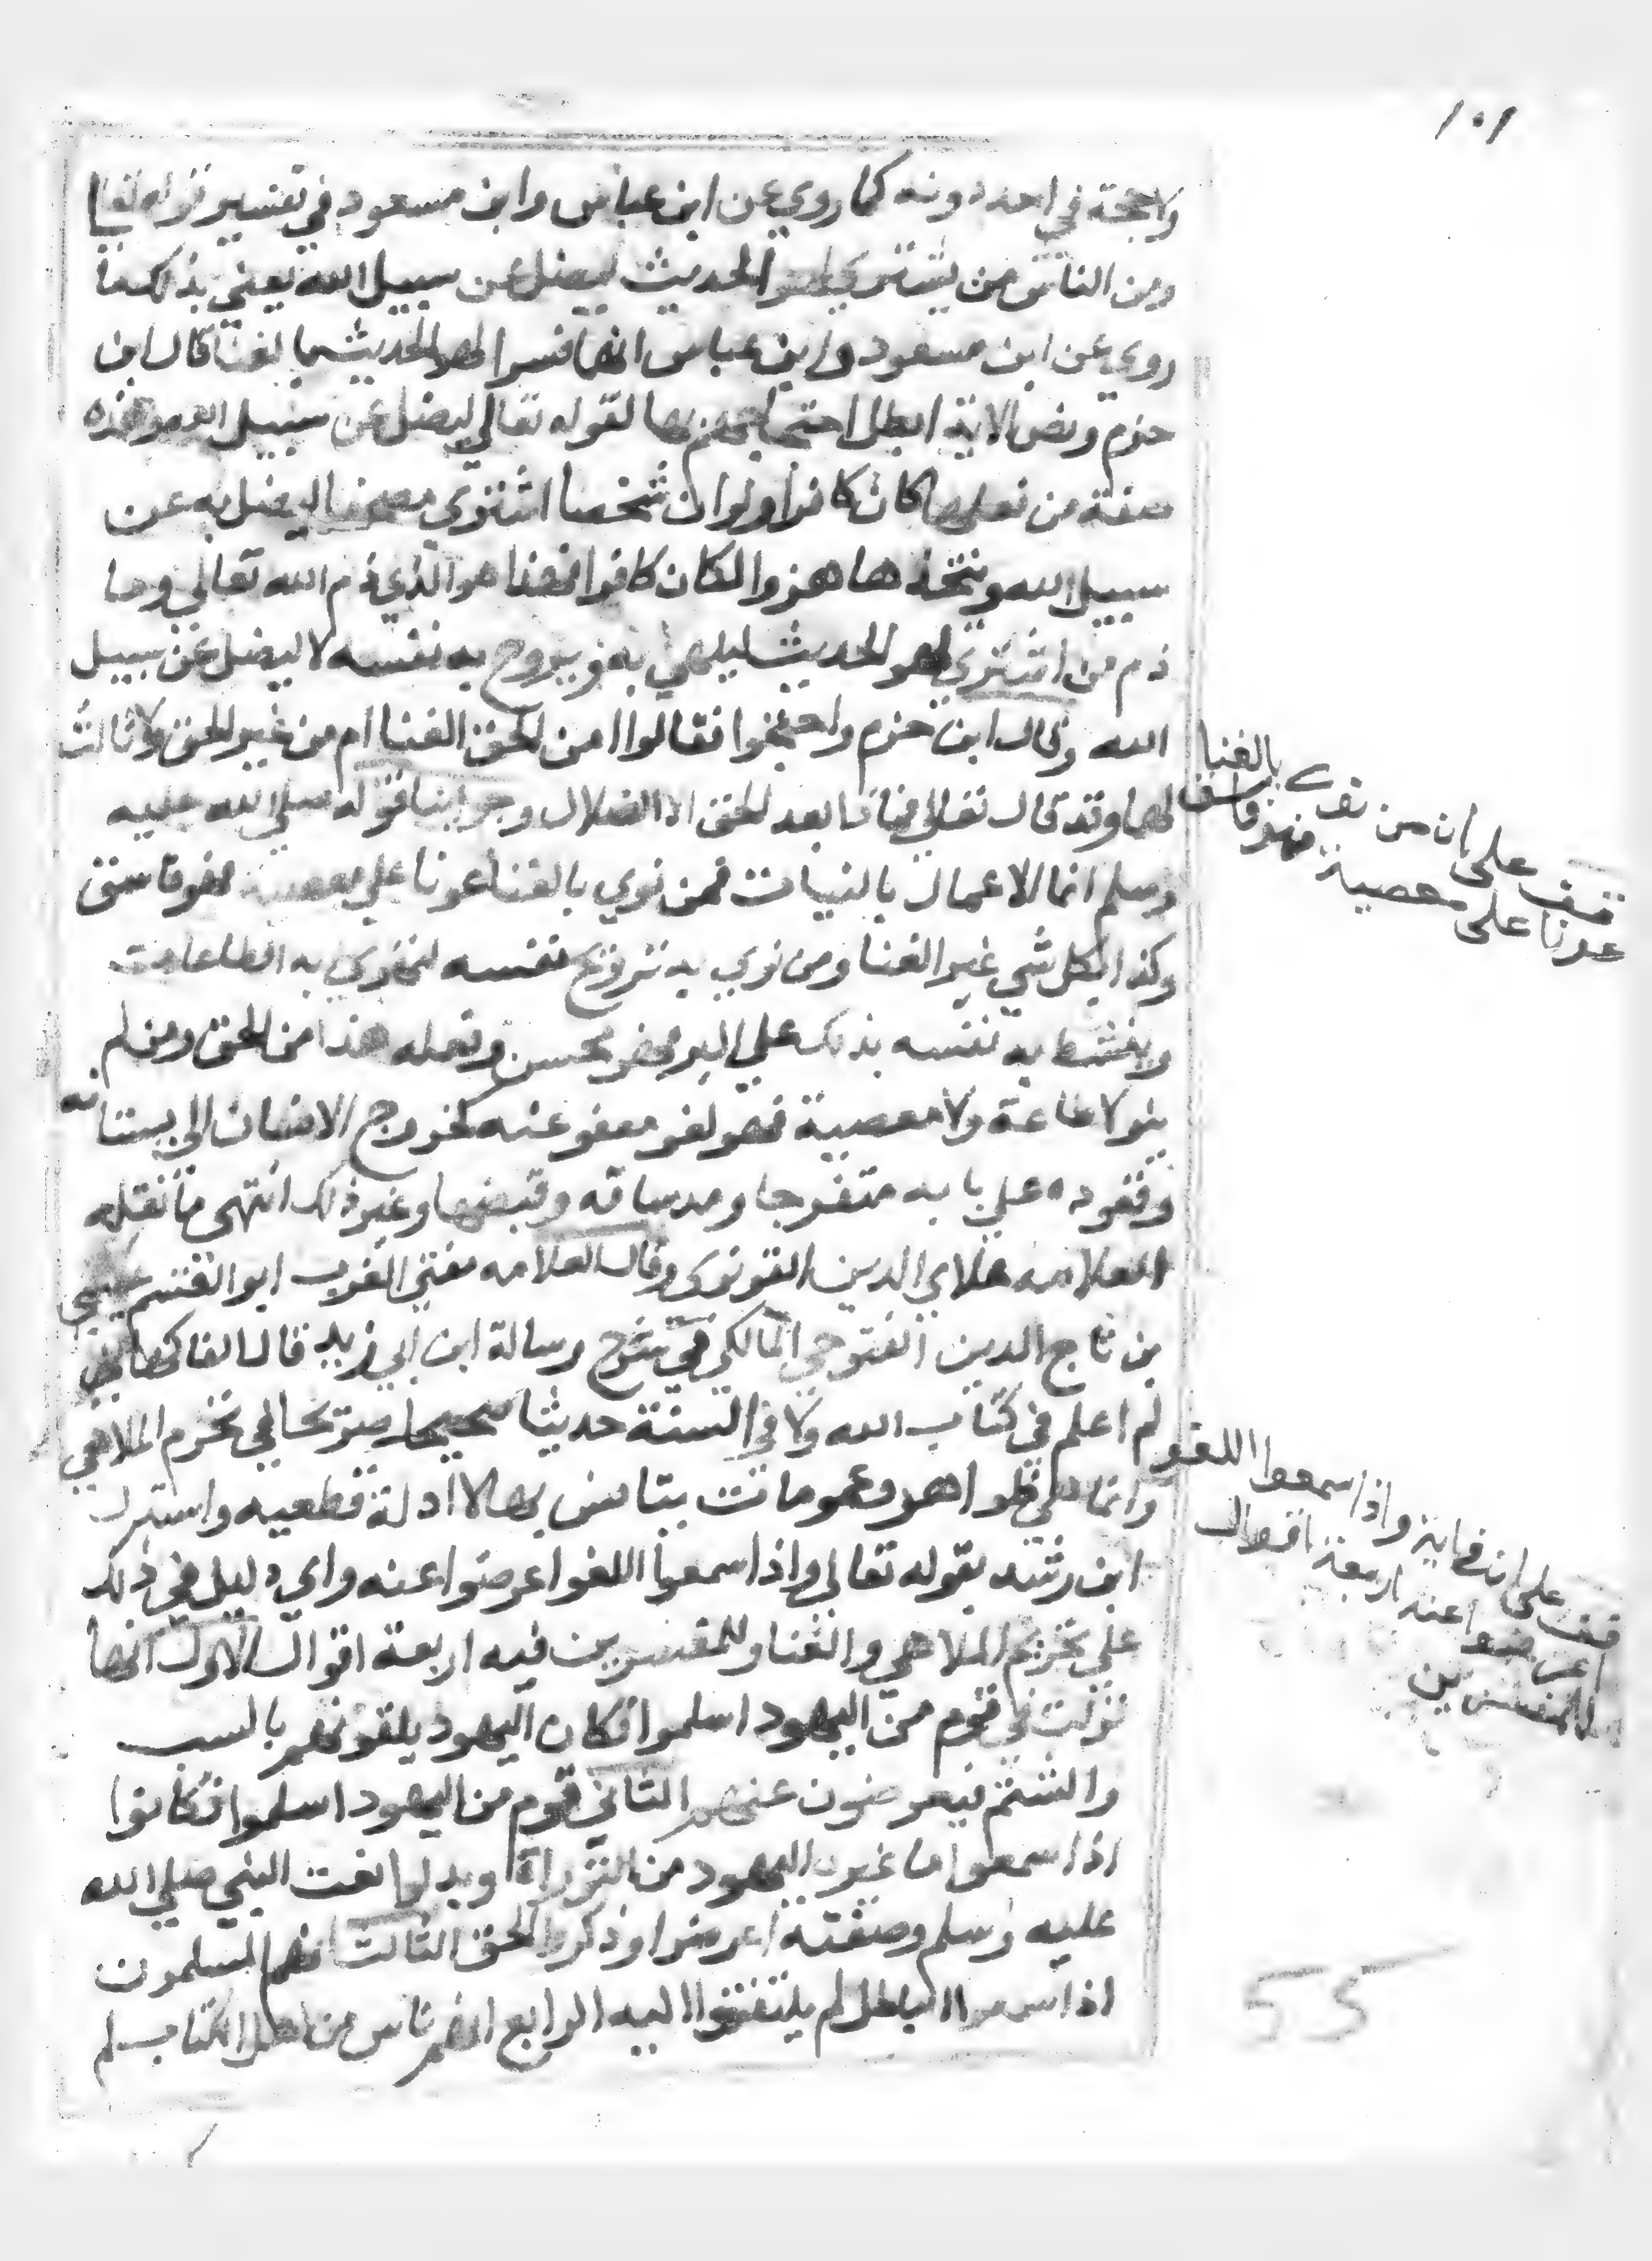 ١٥١
ولا حجة في احد دونه كما روي عن ابن عباس وابن مسعود في تفسير قوله تعالى
ومن الناس من يشتري لهو الحديث ليضل عن سبيل الله يعني بذلك ما
روي عن ابن مسعود وابن عباس انهما فسرا لهو الحديث بما لغنا قال ابن
حزم ونص الاية ابطل احتجاجهم بها لقوله تعالى ليضل عن سبيل الله وهذه
صفة من فعلها كان كافرا ولو ان شخصا اشتري مصحفا ليضل به عن
سبيل الله ويتخذها هزوا لكان كافرا فهذا هو الذي ذم الله تعالي وما
ذم من اشتري لهو الحديث ليلهي به ويروح به نفسه لا ليضل عن سبيل
الله وقال ابن حزم واحتجوا فقالوا امن الحق الغنا ام من غير الحق ولا ثالث
لهما وقد قال تعالي فماذا بعد الحق الا الضلال وجوابنا قوله صلي الله عليه
وسلم انما الاعمال بالنيات فمن نوي بالغنا عونا علي معصية فهو فاسق
وكذا كل شي غير الغنا ومن نوي به ترويح نفسه ليقوي به الطاعات
وينشط به نفسه بذلك علي البر فهو محسن وفعله هذا من الحق ومن لم
ينو لا طاعة ولا معصية فهو لغو معفو عنه كخروج الانسان الى بستانه
وقعوده علي بابه متفرجا ومد ساقه وقبضها وغير ذلك انتهى ما نقله
العلامه علاي الدين القونوي وقال العلامه مفتي الغرب ابو القسم عيسى
بن تاج الدين الفتوحي المالكي في شرح رسالة ابن ابي زيد قال الفاكهاني
لم اعلم في كتاب الله ولا في السنة حديثا صحيحا صريحا في تحرم الملاهي
وانما هي ظواهر وعمومات يتانس بها لا ادلة قطعيه واستدل
ابن رشد بقوله تعالى واذا سمعوا اللغو اعرضوا عنه واي دليل في ذلك
علي تحريم الملاهي والغنا وللمفسرين فيه اربعة اقوال الاول انها
نزلت في قوم من اليهود اسلموا فكان اليهود يلقونهم بالسب
والشتم فيعرضون عنهم الثاني قوم من اليهود اسلموا فكانوا
اذا سمعوا ما غيره اليهود من التوراة وبدلوا نعت النبي صلي الله
عليه وسلم وصفته اعرضوا وذكروا الحق الثالث انهم المسلمون
اذا سمعوا الباطل لم يلتفتوا اليه الرابع انهم ناس من اهل الكتاب لم
قف على ان من نوى بالغنا
عونا على معصية فهو فاسق
قف على ان في اية واذا سمعوا اللغو
اعرضوا عنه اربعة اقوال
للمفسرين
55